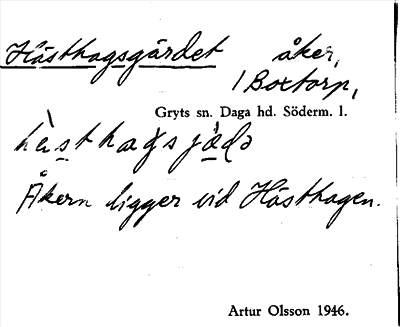 Hästhagsgärdet åker,
1 Boxtorp,
Gryts sn. Daga hd. Söderm. l.
Åkern ligger vid Hästhagen.
Artur Olsson 1946.